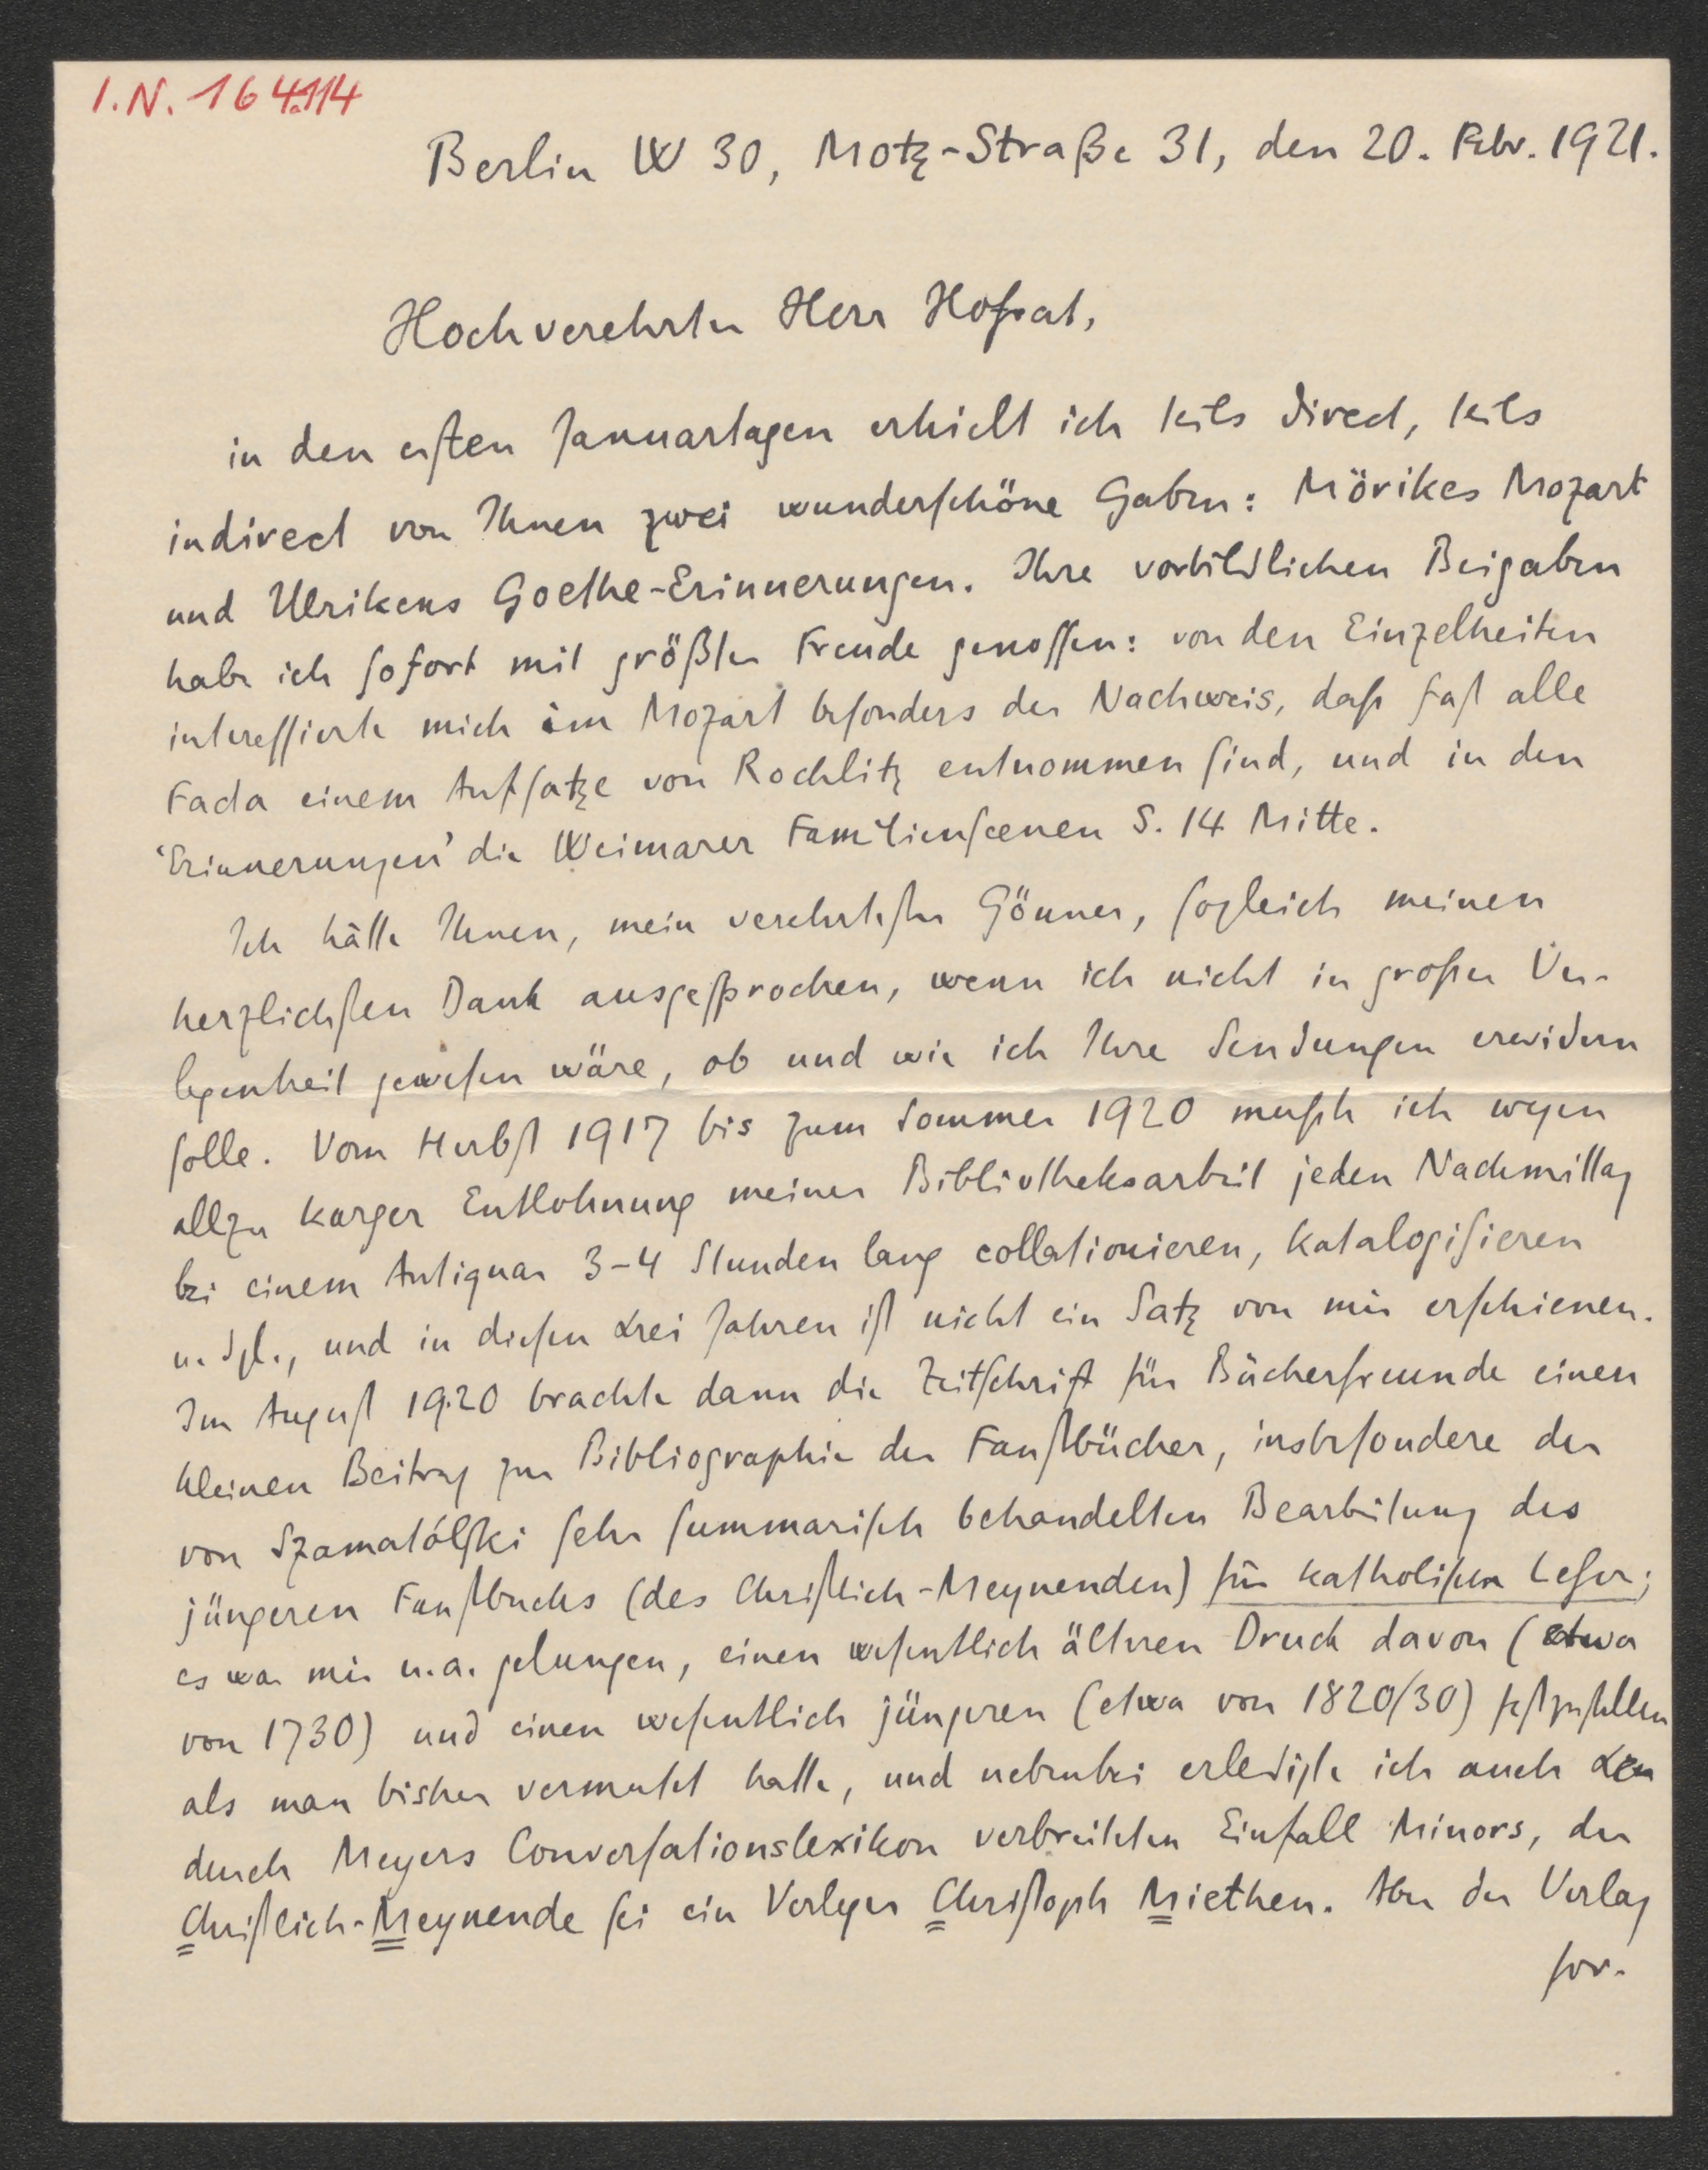 I.N. 164.114
Berlin W 30, Motz-Straße 31, den 20. Febr. 1921.
Hochverehrter Herr Hofrat,
in den ersten Januartagen erhielt ich teils direct, teils
indirect von Ihnen zwei wunderschöne Gaben: Mörikes Mozart
und Ulrikens Goethe-Erinnerungen. Ihre vorbildlichen Beigaben
habe ich sofort mit größter Freude genossen: von den Einzelheiten
interessierte mich im Mozart besonders der Nachweis, dass fast alle
Facta einem Aufsatze von Rochlitz entnommen sind, und in den
'Erinnerungen' die Weimarer Familienscenen S. 14 Mitte.
Ich hätte Ihnen, mein verehrtester Gönner, sogleich meinen
herzlichsten Dank ausgesprochen, wenn ich nicht in grosser Ver-
legenheit gewesen wäre, ob und wie ich Ihre Sendungen erwidern
solle. Vom Herbst 1917 bis zum Sommer 1920 musste ich wegen
allzu karger Entlohnung meiner Bibliotheksarbeit jeden Nachmittag
bei einem Antiquar 3-4 Stunden lang collationieren, katalogisieren
u. dgl., und in diesen drei Jahren ist nicht ein Satz von mir erschienen.
Im August 1920 brachte dann die Zeitschrift für Bücherfreunde einen
kleinen Beitrag zur Bibliographie der Faustbücher, insbesondere der
von Szamatólski sehr summarisch behandelten Bearbeitung des
jüngeren Faustbuchs (des Christlich-Meynenden) für katholische Leser;
es war mir u.a. gelungen, einen wesentlich älteren Druck davon (etwa
von 1730) und einen wesentlich jüngeren (etwa von 1820/30) festzustellen
als man bisher vermutet hatte, und nebenbei erledigte ich auch den
durch Meyers Conversationslexikon verbreiteten Einfall Minors, der
Christlich-Meynende sei ein Verleger Christoph Miethen. Aber der Verlag
for-